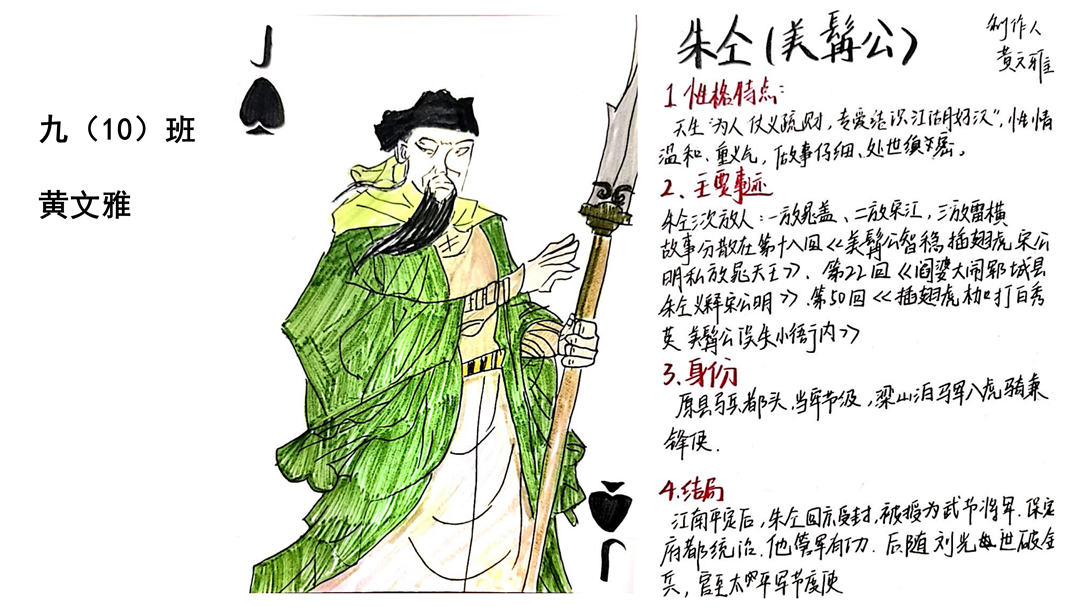 J
九（10）班
黄文雅
朱仝（美髯公）
制作人
黄文雅
1 性格特点：
天生"为人仗义疏财，专爱结识江湖好汉"，性情
温和、重义气，做事仔细、处世缜密。
2、主要事迹
朱仝三次放人：一放晁盖、二放宋江，三放雷横
故事分散在第十八回《美髯公智稳插翅虎宋公
明私放晁天王》、第22回《阎婆大闹郓城县
朱仝义释宋公明》第50回《插翅虎枷打白秀
英 美髯公误失小衙内》
3.身份
原县马兵都头、当牢节级，梁山泊马军八虎骑兼
锋使.
4.结局
江南平定后，朱仝回京受封，被授为武节将军.保定
府都统治.他管军有功.后随刘光世破金
兵，官至太平军节度使
J